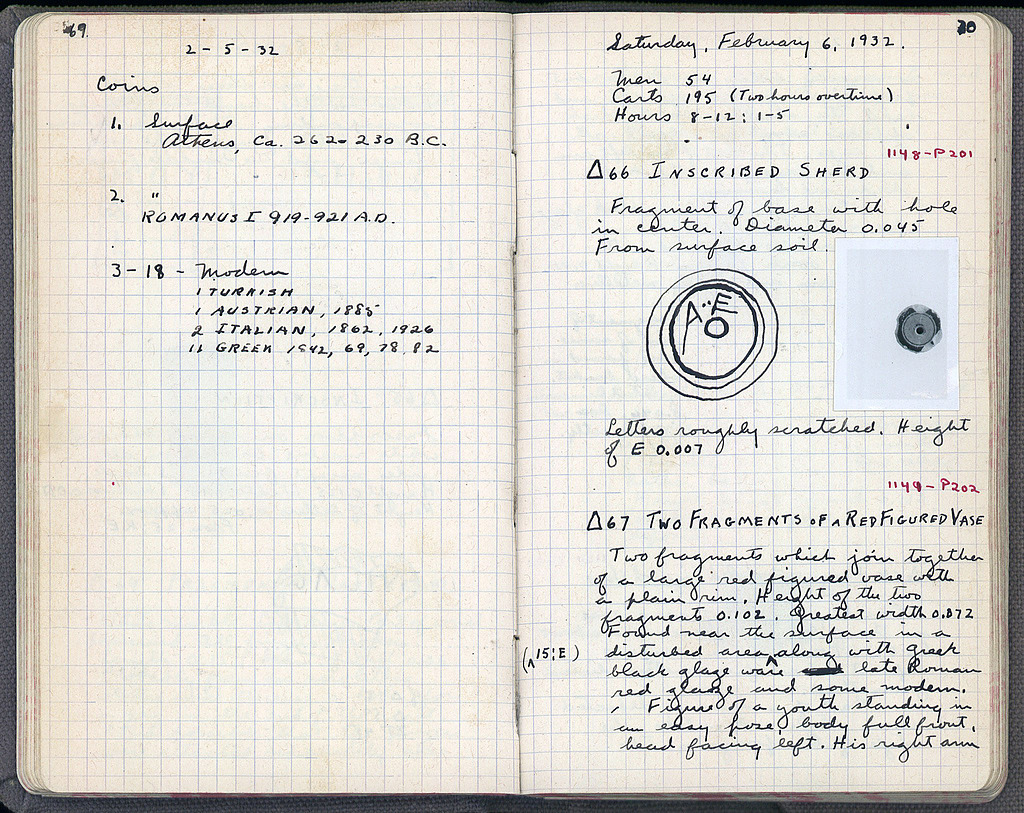 69.
2 - 5 - 32
Coins
1. Surface
Athens, Ca. 262-230 B.C.
2. "
ROMANUS I 919-921 A.D.
3-18 - Modern
1 TURKISH
1 AUSTRIAN, 1885
2 ITALIAN, 1862, 1926
11 GREEK 1842, 69, 78, 82
70
Saturday, February 6, 1932.
Men 54
Carts 195 (Two hours overtime)
Hours 8-12 ; 1-5
1148-P201
Δ66 INSCRIBED SHERD
Fragment of base with hole
in center. Diameter 0.045
From surface soil.
A··E
Letters roughly scratched. Height
of E 0.007
1149-P202
Δ67 TWO FRAGMENTS OF A RED FIGURED VASE
Two fragments which join together
of a large red figured vase with
a plain rim. Height of the two
fragments 0.102. Greatest width 0.072
Found near the surface in a
(15:E) disturbed area, along with greek
black glaze ware late Roman
red glaze and some modern.
Figure of a youth standing in
an easy pose, body full front,
head facing left. His right arm